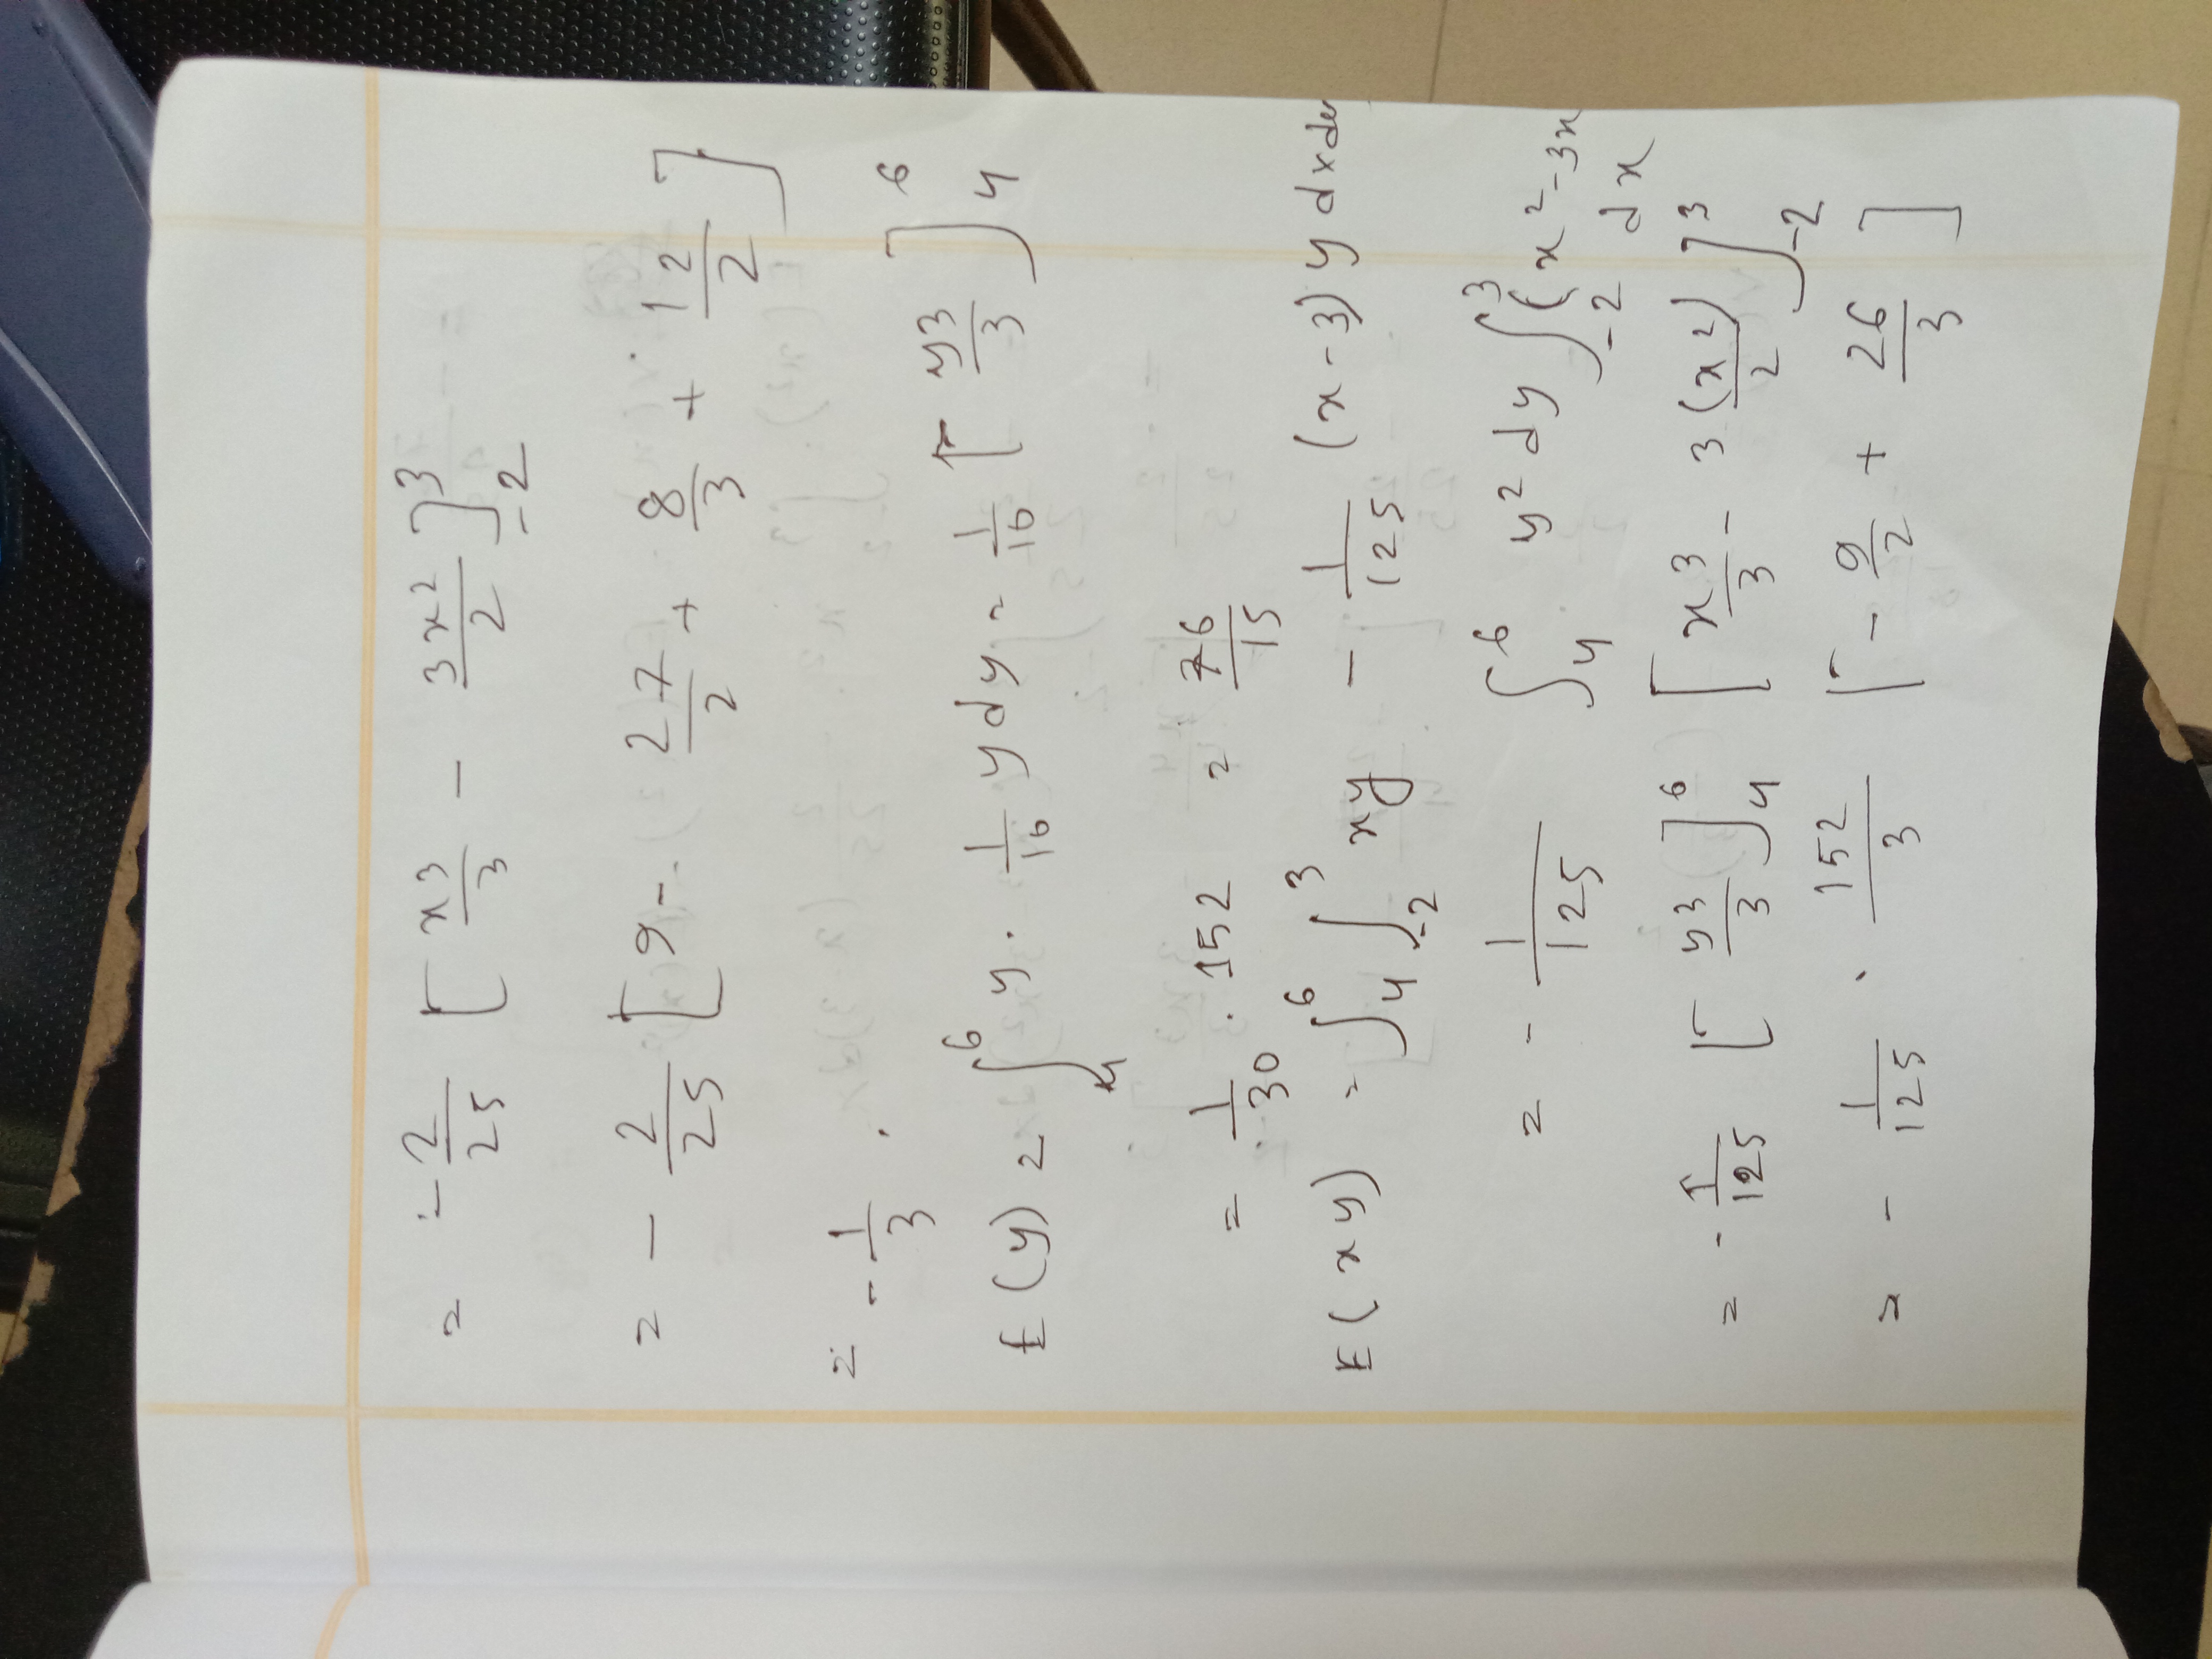 = - 2/25 [ x³/3 - 3x²/2 ]³₋₂
= - 2/25 [ 9 - 27/2 + 8/3 + 12/2 ]
= - 1/3 .
E(y) = ∫₄⁶ y . 1/10 y dy = 1/10 [ y³/3 ]₄⁶
= 1/30 . 152 = 76/15
E(xy) = ∫₄⁶ ∫₋₂³ xy - 1/125 (x-3) y dx dy
= - 1/125 ∫₄⁶ y² dy ∫₋₂³ (x² - 3x dx
= - 1/125 [ y³/3 ]₄⁶ [ x³/3 - 3(x²)/2 ]³₋₂
= - 1/125 . 152/3 [ - 9/2 + 26/3 ]